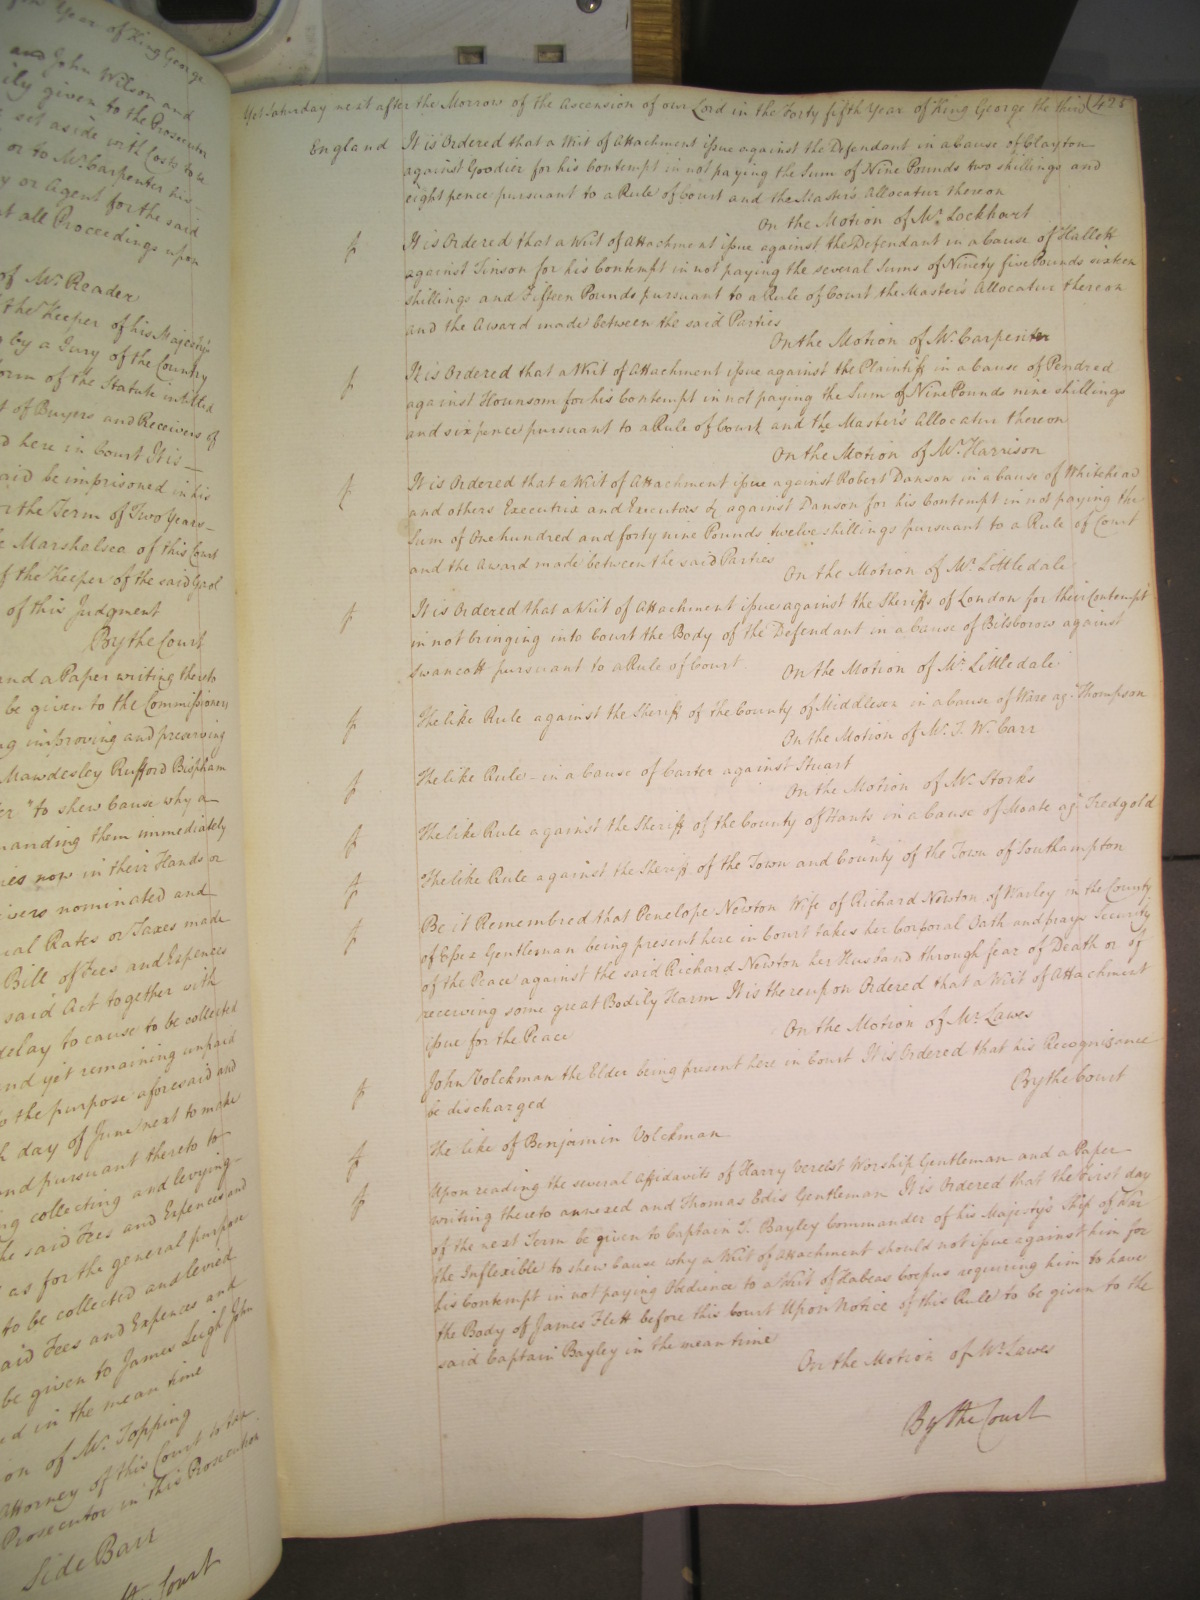 fth Year of King George
and John Wilson and
ily given to the Prosecutor
set aside with Costs to be
or to Mr. Carpenter his
y or Agent for the said
at all Proceedings upon
of Mr. Reader
the Keeper of his Majesty's
by a Jury of the Country
form of the Statute intitled
t of Buyers and Receivers of
d here in Court It is
aid be imprisoned in his
r the Term of Two Years
e Marshalsea of this Court
f the Keeper of the said Gaol
of this Judgment
By the Court
and a Paper writing thereto
be given to the Commissioners
ng improving and preserving
Mawdesley Rufford Bispham
er "to shew Cause why a
manding them immediately
ies now in their Hands or
ivers nominated and
ial Rates or Taxes made
Bill of Fees and Expences
said Act together with
delay to cause to be collected
and yet remaining unpaid
o the purpose aforesaid and
h day of June next to make
and pursuant thereto to
ng collecting and levying
he said Fees and Expences and
as for the general purpose
to be collected and levied
aid Fees and Expences and
be given to James Leigh John
d in the mean time
on of Mr. Topping
Attorney of this Court to tax
Prosecutor in this Prosecution
Side Barr
the Court
Yet Saturday next after the Morrow of the Ascension of our Lord in the Forty fifth Year of King George the third 425
England It is Ordered that a Writ of Attachment issue against the Defendant in a Cause of Clayton
against Goodier for his Contempt in not paying the Sum of Nine Pounds two shillings and
eight pence pursuant to a Rule of Court and the Master's Allocatur thereon
On the Motion of Mr. Lockhart
It is Ordered that a Writ of Attachment issue against the Defendant in a Cause of Hallett
against Tinson for his Contempt in not paying the several Sums of Ninety five Pounds sixteen
shillings and Fifteen Pounds pursuant to a Rule of Court the Master's Allocatur thereon
and the Award made between the said Parties
On the Motion of Mr. Carpenter
It is Ordered that a Writ of Attachment issue against the Plaintiff in a Cause of Pendred
against Hounsom for his Contempt in not paying the Sum of Nine Pounds nine shillings
and sixpence pursuant to a Rule of Court and the Master's Allocatur thereon
On the Motion of Mr. Harrison
It is Ordered that a Writ of Attachment issue against Robert Danson in a Cause of Whitehead
and others Executrix and Executors &c against Danson for his Contempt in not paying the
Sum of One hundred and forty nine Pounds twelve shillings pursuant to a Rule of Court
and the Award made between the said Parties
On the Motion of Mr. Littledale
It is Ordered that a Writ of Attachment issue against the Sheriffs of London for their Contempt
in not bringing into Court the Body of the Defendant in a Cause of Bilsborow against
Swancott pursuant to a Rule of Court
On the Motion of Mr. Littledale
The like Rule against the Sheriff of the County of Middlesex in a Cause of Ware agt. Thompson
On the Motion of Mr. J. W. Carr
The like Rule - in a Cause of Carter against Stuart
On the Motion of Mr. Storks
The like Rule against the Sheriff of the County of Hants in a Cause of Moate agt. Tredgold
The like Rule against the Sheriff of the Town and County of the Town of Southampton
Be it Remembred that Penelope Newton Wife of Richard Newton of Warley in the County
of Essex Gentleman being present here in Court takes her Corporal Oath and prays Security
of the Peace against the said Richard Newton her Husband through fear of Death or of
receiving some great Bodily Harm It is thereupon Ordered that a Writ of Attachment
issue for the Peace
On the Motion of Mr. Lawes
John Volckman the Elder being present here in Court It is Ordered that his Recognizance
be discharged
By the Court
The like of Benjamin Volckman
Upon reading the several Affidavits of Harry Verelst Worship Gentleman and a Paper
writing thereto annexed and Thomas Edis Gentleman It is Ordered that the first day
of the next Term be given to Captain T. Bayley Commander of his Majesty's Ship of War
the Inflexible to shew Cause why a Writ of Attachment should not issue against him for
his Contempt in not paying Obedience to a Writ of Habeas Corpus requiring him to have
the Body of James Flett before this Court Upon Notice of this Rule to be given to the
said Captain Bayley in the mean time
On the Motion of Mr. Lawes
By the Court